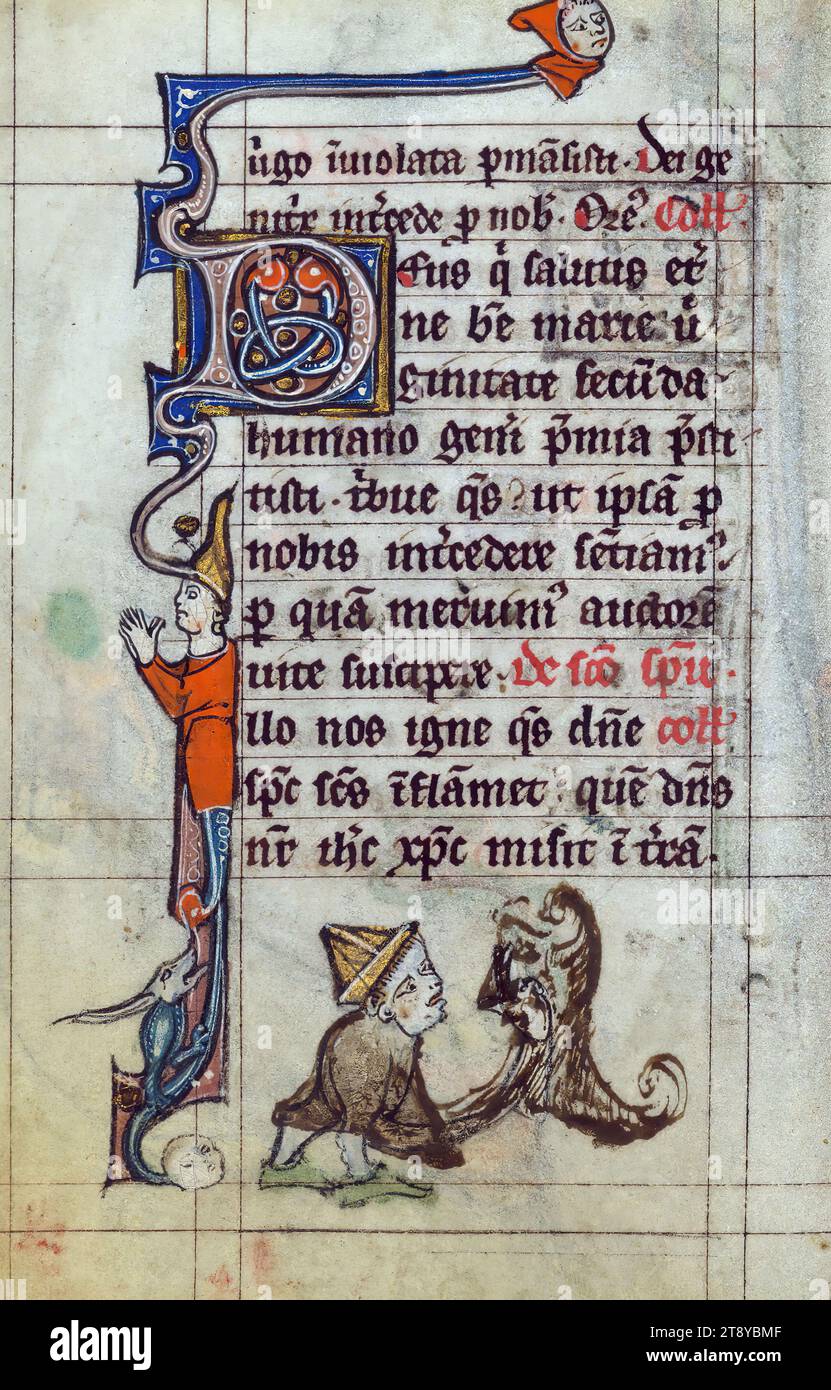 ũgo ĩuiolata pmãsisti. Dei ge
nit͛x int͛cede p nob̵. Oreꝰ Coll̃.
Deus q̾ salutis et͛
ne b̃e marie ũ
ginitate fecũda
humano gen̾i p̃mia p̃sti
tisti. t͛bue q̃s? ut ipsã p
nobis int͛cedere sẽtiamꝰ.
ꝑ quã meruimꝰ auctorẽ
uite suscip̾e. de sc̃o sp̃u.
llo nos igne q̃s dñe coll̃
sp̃c sc̃s ĩflãmet. quẽ dñs
nr̃ ih̃c xp̃c misit ĩ t͛rã.
alamy
alamy
Image ID: 2T8YBMF
www.alamy.com